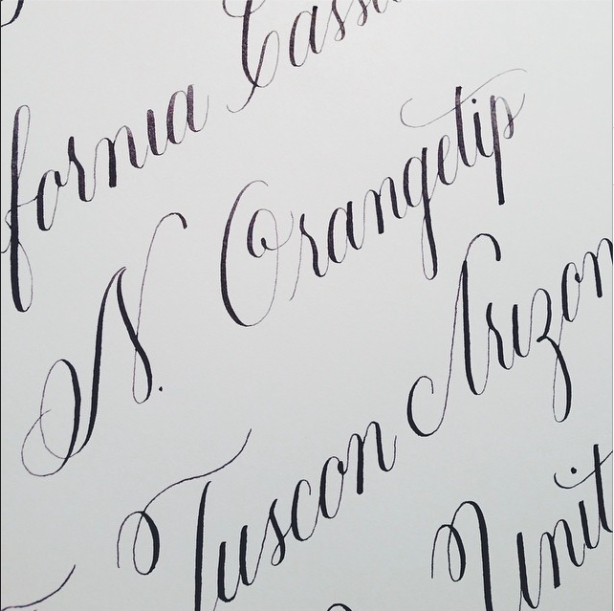 fornia Cass
N. Orangetip
Tuscon Arizon
Unit